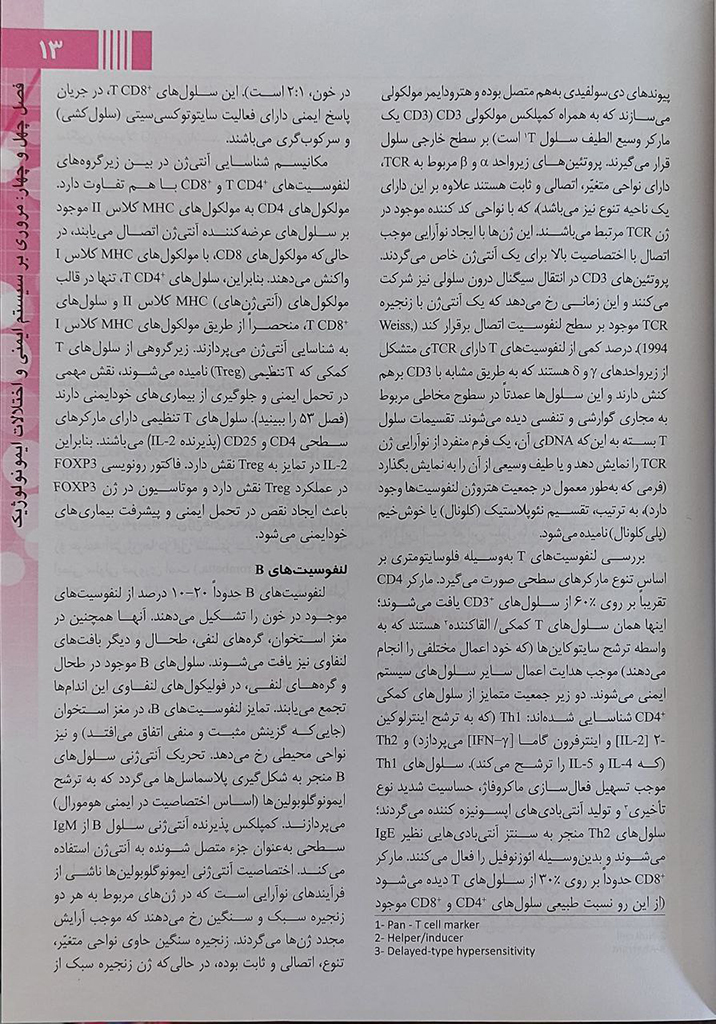 ۱۳
فصل چهل و چهار: مروری بر سیستم ایمنی و اختلالات ایمونولوژیک
پیوندهای دی‌سولفیدی به‌هم متصل بوده و هترودایمر مولکولی
می‌سازند که به همراه کمپلکس مولکولی CD3 (CD3 یک
مارکر وسیع الطیف سلول T۱ است) بر سطح خارجی سلول
قرار می‌گیرند. پروتئین‌های زیرواحد α و β مربوط به TCR،
دارای نواحی متغیّر، اتصالی و ثابت هستند علاوه بر این دارای
یک ناحیه تنوع نیز می‌باشد)، که با نواحی کد کننده موجود در
ژن TCR مرتبط می‌باشند. این ژن‌ها با ایجاد نوآرایی موجب
اتصال با اختصاصیت بالا برای یک آنتی‌ژن خاص می‌گردند.
پروتئین‌های CD3 در انتقال سیگنال درون سلولی نیز شرکت
می‌کنند و این زمانی رخ می‌دهد که یک آنتی‌ژن با زنجیره
TCR موجود بر سطح لنفوسیت اتصال برقرار کند (Weiss,
1994). درصد کمی از لنفوسیت‌های T دارای TCRی متشکل
از زیرواحدهای γ و δ هستند که به طریق مشابه با CD3 برهم
کنش دارند و این سلول‌ها عمدتاً در سطوح مخاطی مربوط
به مجاری گوارشی و تنفسی دیده می‌شوند. تقسیمات سلول
T بسته به این‌که DNAی آن، یک فرم منفرد از نوآرایی ژن
TCR را نمایش دهد و یا طیف وسیعی از آن را به نمایش بگذارد
(فرمی که به‌طور معمول در جمعیت هتروژن لنفوسیت‌ها وجود
دارد)، به ترتیب، تقسیم نئوپلاستیک (کلونال) یا خوش‌خیم
(پلی‌کلونال) نامیده می‌شود.
بررسی لنفوسیت‌های T به‌وسیله فلوسایتومتری بر
اساس تنوع مارکرهای سطحی صورت می‌گیرد. مارکر CD4
تقریباً بر روی ۶۰٪ از سلول‌های CD3⁺ یافت می‌شوند؛
اینها همان سلول‌های T کمکی/ القاکننده۲ هستند که به
واسطه ترشح سایتوکاین‌ها (که خود اعمال مختلفی را انجام
می‌دهند) موجب هدایت اعمال سایر سلول‌های سیستم
ایمنی می‌شوند. دو زیر جمعیت متمایز از سلول‌های کمکی
CD4⁺ شناسایی شده‌اند: Th1 (که به ترشح اینترلوکین
-۲ [IL-2] و اینترفرون گاما [IFN-γ] می‌پردازد) و Th2
(که IL-4 و IL-5 را ترشح می‌کند). سلول‌های Th1
موجب تسهیل فعال‌سازی ماکروفاژ، حساسیت شدید نوع
تأخیری۳ و تولید آنتی‌بادی‌های اپسونیزه کننده می‌گردند؛
سلول‌های Th2 منجر به سنتز آنتی‌بادی‌هایی نظیر IgE
می‌شوند و بدین‌وسیله ائوزنوفیل را فعال می‌کنند. مارکر
CD8⁺ حدوداً بر روی ۳۰٪ از سلول‌های T دیده می‌شود
(از این رو نسبت طبیعی سلول‌های CD4⁺ و CD8⁺ موجود
1- Pan - T cell marker
2- Helper/inducer
3- Delayed-type hypersensitivity
در خون، ۲:۱ است). این سلول‌های T CD8⁺، در جریان
پاسخ ایمنی دارای فعالیت سایتوتوکسی‌سیتی (سلول‌کشی)
و سرکوب‌گری می‌باشند.
مکانیسم شناسایی آنتی‌ژن در بین زیرگروه‌های
لنفوسیت‌های T CD4⁺ و CD8⁺ با هم تفاوت دارد.
مولکول‌های CD4 به مولکول‌های MHC کلاس II موجود
بر سلول‌های عرضه‌کننده آنتی‌ژن اتصال می‌یابند، در
حالی‌که مولکول‌های CD8، با مولکول‌های MHC کلاس I
واکنش می‌دهند. بنابراین، سلول‌های T CD4⁺، تنها در قالب
مولکول‌های (آنتی‌ژن‌های) MHC کلاس II و سلول‌های
T CD8⁺، منحصراً از طریق مولکول‌های MHC کلاس I
به شناسایی آنتی‌ژن می‌پردازند. زیرگروهی از سلول‌های T
کمکی که T تنظیمی (Treg) نامیده می‌شوند، نقش مهمی
در تحمل ایمنی و جلوگیری از بیماری‌های خودایمنی دارند
(فصل ۵۳ را ببینید). سلول‌های T تنظیمی دارای مارکرهای
سطحی CD4 و CD25 (پذیرنده IL-2) می‌باشند. بنابراین
IL-2 در تمایز به Treg نقش دارد. فاکتور رونویسی FOXP3
در عملکرد Treg نقش دارد و موتاسیون در ژن FOXP3
باعث ایجاد نقص در تحمل ایمنی و پیشرفت بیماری‌های
خودایمنی می‌شود.
لنفوسیت‌های B
لنفوسیت‌های B حدوداً ۲۰-۱۰ درصد از لنفوسیت‌های
موجود در خون را تشکیل می‌دهند. آنها همچنین در
مغز استخوان، گره‌های لنفی، طحال و دیگر بافت‌های
لنفاوی نیز یافت می‌شوند. سلول‌های B موجود در طحال
و گره‌های لنفی، در فولیکول‌های لنفاوی این اندام‌ها
تجمع می‌یابند. تمایز لنفوسیت‌های B، در مغز استخوان
(جایی‌که گزینش مثبت و منفی اتفاق می‌افتد) و نیز
نواحی محیطی رخ می‌دهد. تحریک آنتی‌ژنی سلول‌های
B منجر به شکل‌گیری پلاسماسل‌ها می‌گردد که به ترشح
ایمونوگلوبولین‌ها (اساس اختصاصیت در ایمنی هومورال)
می‌پردازند. کمپلکس پذیرنده آنتی‌ژنی سلول B از IgM
سطحی به‌عنوان جزء متصل شونده به آنتی‌ژن استفاده
می‌کند. اختصاصیت آنتی‌ژنی ایمونوگلوبولین‌ها ناشی از
فرآیندهای نوآرایی است که در ژن‌های مربوط به هر دو
زنجیره سبک و سنگین رخ می‌دهند که موجب آرایش
مجدد ژن‌ها می‌گردند. زنجیره سنگین حاوی نواحی متغیّر،
تنوع، اتصالی و ثابت بوده، در حالی‌که ژن زنجیره سبک از